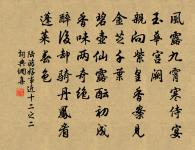 風露九霄寒侍宴
玉華宮闕
親向紫皇香案見
金芝千葉
碧壺仙露醞初成
香味兩奇絕
醉後卻騎丹鳳看
蓬萊春色
陸游好事近十二之二
詞典網集